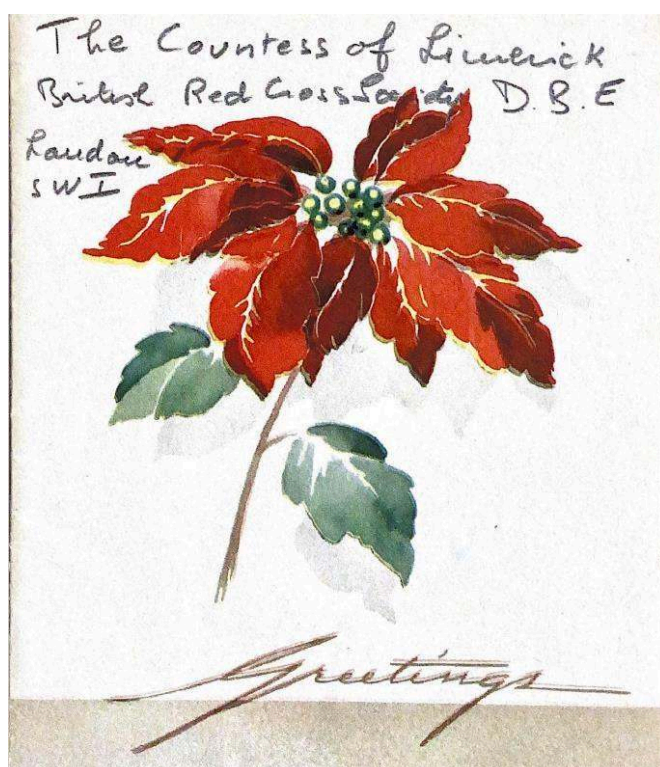 The Countess of Limerick
British Red Cross Society D.B.E
London
SW I
Greetings